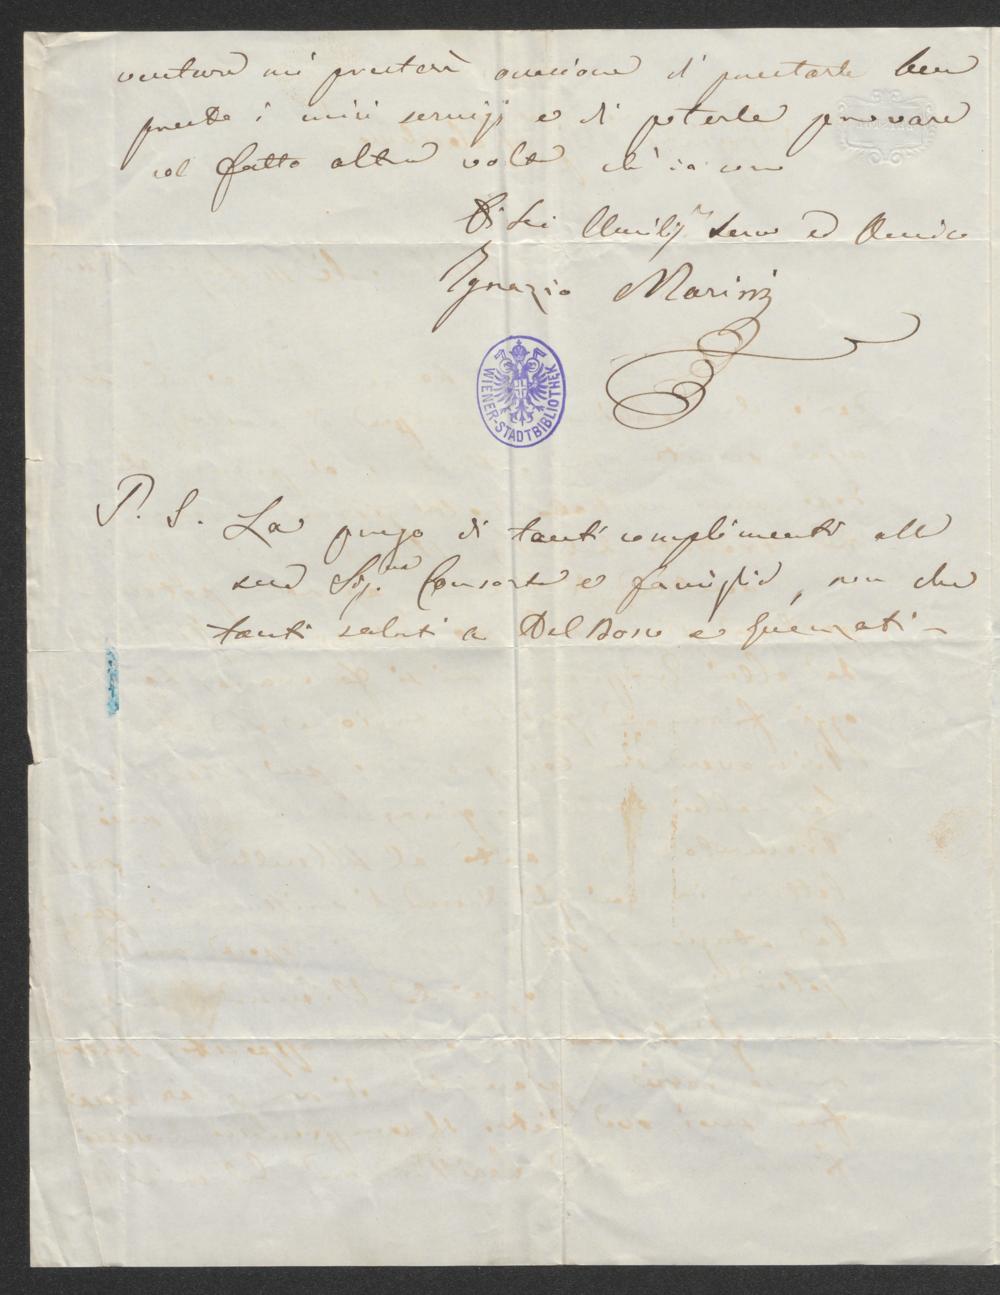 ventura mi presterà occasione di prestarle ben
presto i miei servigj e di poterle provare
col fatto altra volta ch'io sono
Di Lei Umilis.mo Servo ed Amico
Ignazio Marini
WIENER-STADTBIBLIOTHEK
P. S. La prego di tanti complimenti alla
sua Sig.ra Consorte e famiglia, non che
tanti saluti a Del Bosco e Guenzati -